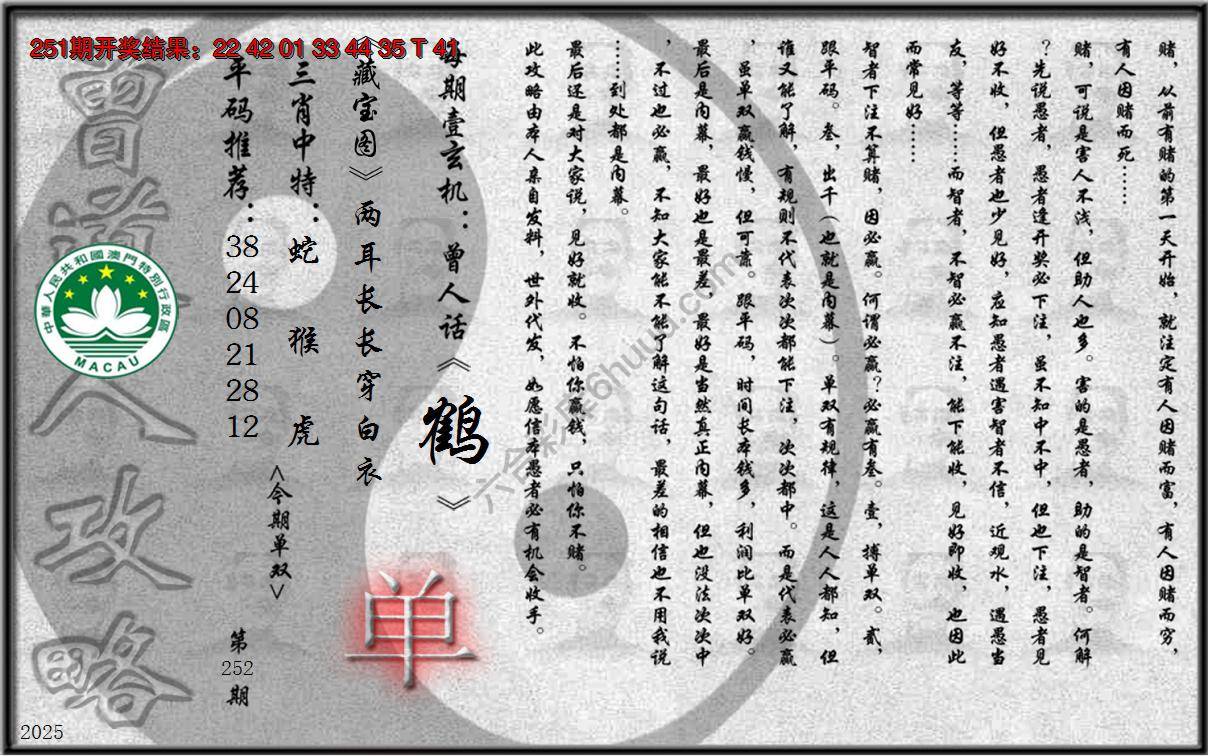 251期开奖结果：22 42 01 33 44 35 T 41
赌，从前有赌的第一天开始，就注定有人因赌而富，有人因赌而穷，
有人因赌而死……
赌，可说是害人不浅，但助人也多。害的是愚者，助的是智者。何解
？先说愚者，愚者逢开奖必下注，虽不知中不中，但也下注，愚者见
好不收，但愚者也少见好，应知愚者遇害智者不信，近观水，遇愚当
友，等等……而智者，不智必赢不注，能下能收，见好即收，也因此
而常见好……
智者下注不算赌，因必赢。何谓必赢？必赢有叁。壹，搏单双。贰，
跟平码。叁，出千（也就是内幕）。单双有规律，这是人人都知，但
谁又能了解，有规则不代表次次都能下注，次次都中。而是代表必赢
，虽单双赢钱慢，但可靠。跟平码，时间长本钱多，利润比单双好。
最后是内幕，最好也是最差，最好是当然真正内幕，但也没法次次中
，不过也必赢，不知大家能不能了解这句话，最差的相信也不用我说
……到处都是内幕。
最后还是对大家说，见好就收。不怕你赢钱，只怕你不赌。
此攻略由本人亲自发料，世外代发，如愿信本愚者必有机会收手。
每期壹玄机：曾人话《鹤》
《藏宝图》两耳长长穿白衣
三肖中特：蛇 猴 虎
<今期单双>
单
平码推荐：
38
24
08
21
28
12
第
252
期
曾道人攻略
中華人民共和國澳門特別行政區
MACAU
2025